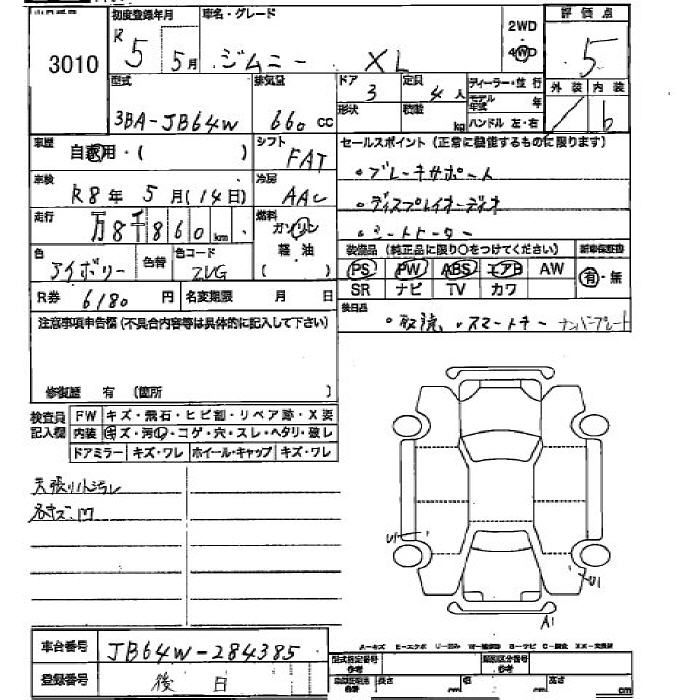 初度登録年月 車名・グレード 評価点
3010 R 5 5月 ジムニー XL 2WD 4WD 5
型式 排気量 ドア 定員 ディーラー・並行 外装 内装
3BA-JB64W 660 CC 3 4人 モデル年式 年 / b
形状 積載 kg ハンドル 左・右
車歴 自家用・( ) シフト FAT セールスポイント (正常に整備するものに限ります)
。ブレーキサポート
車検 R8年 5月(14日) 冷房 AAC
。ディスプレイオーディオ
走行 万8千860km 燃料 ガソリン 軽油 ( )
。シートヒーター
色 アイボリー 色替 色コード ZVG
装備品 (純正品に限り○をつけてください) 新車保証書
PS PW ABS エアB AW 有・無
SR ナビ TV カワ
R券 6180 円 名変期限 月 日
後日品 。取説 。スマートキー ナンバープレート
注意事項申告欄 (不具合内容等は具体的に記入して下さい)
修復歴 有 (箇所 )
検査員記入欄 FW キズ・飛石・ヒビ割・リペア跡・X要
内装 キズ・汚レ・コゲ・穴・スレ・ヘタリ・破レ
ドアミラー キズ・ワレ ホイール・キャップ キズ・ワレ
天張り小汚レ
U1
U1
A1
車台番号 JB64W-284385
登録番号 後日
型式指定番号 参考 類別区分番号 参考
長さ cm 幅 cm 高さ cm